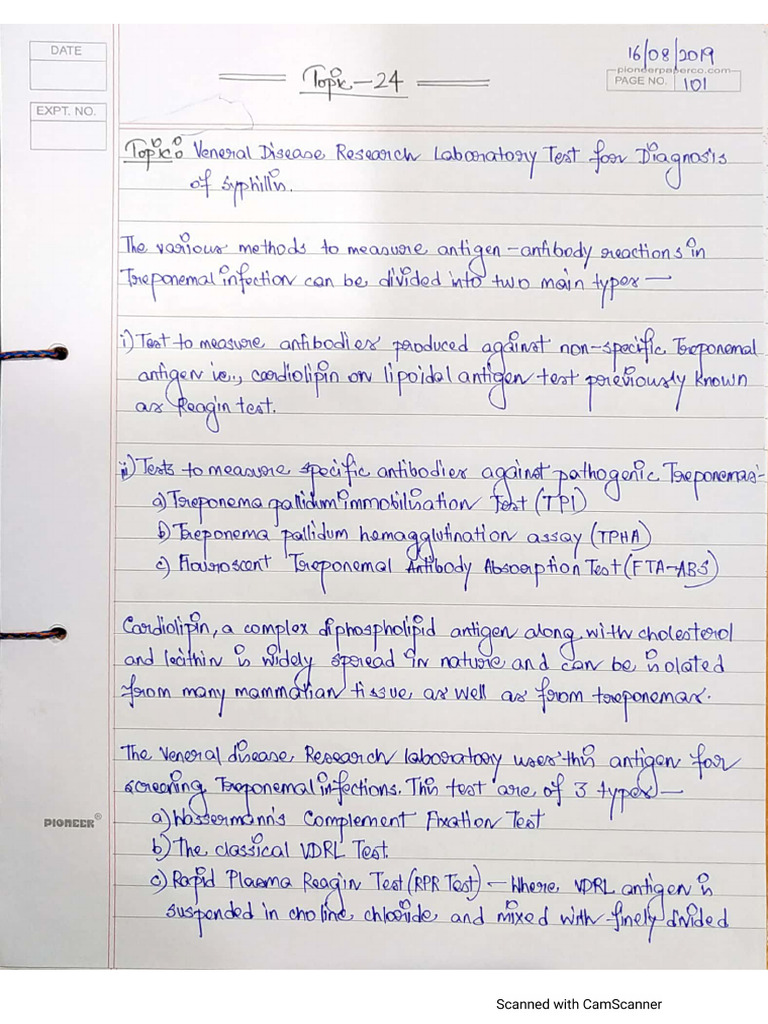 DATE
16/08/2019
pionderpaperco.com
Topic-24
PAGE NO. 101
EXPT. NO.
Topic: Veneral Disease Research Laboratory Test for Diagnosis
of Syphillis.
The various methods to measure antigen-antibody reactions in
Treponemal infection can be divided into two main types—
i) Test to measure antibodies produced against non-specific Treponemal
antigen i.e., cardiolipin or lipoidal antigen test previously known
as Reagin test.
ii) Tests to measure specific antibodies against pathogenic Treponemas:-
a) Treponema pallidum immobilisation Test (TPI)
b) Treponema pallidum hemagglutination assay (TPHA)
c) Flauroscent Treponemal Antibody Absorption Test (FTA-ABS)
Cardiolipin, a complex diphospholipid antigen along with cholesterol
and lecithin is widely spread in nature and can be isolated
from many mammalian tissue as well as from treponemas.
The Veneral disease Research laboratory uses this antigen for
screening Treponemal infections. This test are of 3 types—
a) Wassermann's Complement Fixation Test
PIONEER®
b) The classical VDRL Test.
c) Rapid Plasma Reagin Test (RPR Test) — Where, VDRL antigen is
suspended in choline chloride and mixed with finely divided
Scanned with CamScanner